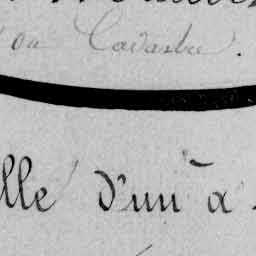 ou Cadastre.
lle d'un à